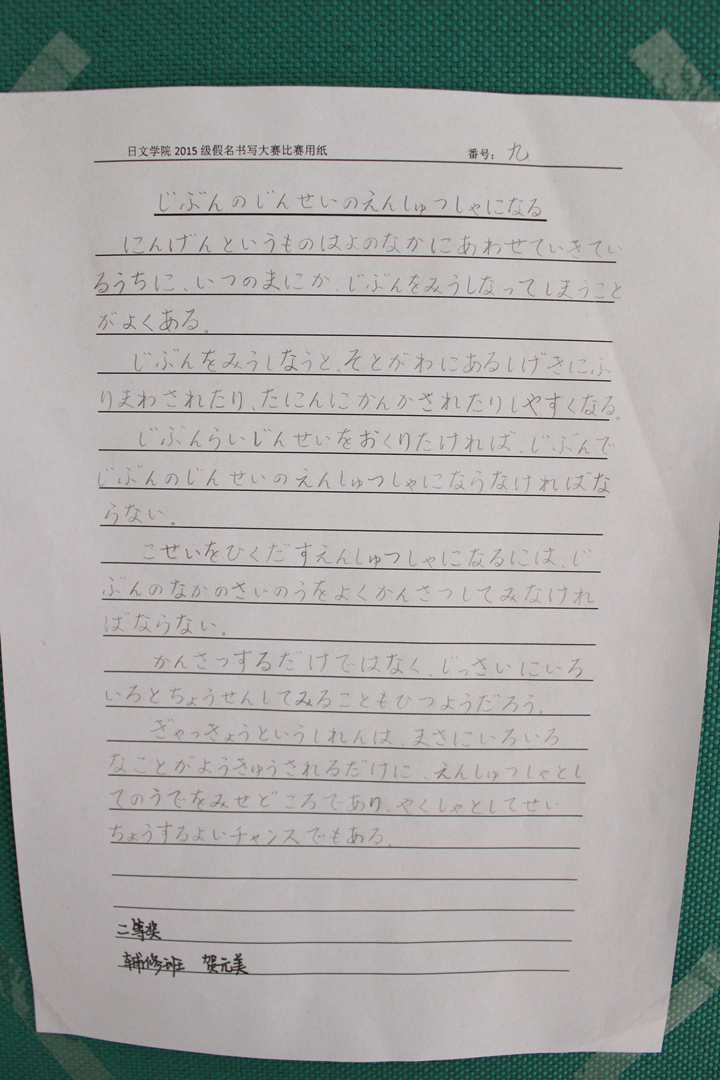 日文学院2015级假名书写大赛比赛用纸 番号：九
じぶんのじんせいのえんしゅつしゃになる
にんげんというものはよのなかにあわせていきてい
るうちに、いつのまにか、じぶんをみうしなってしまうこと
がよくある。
じぶんをみうしなうと、そとがわにあるしげきにふ
りまわされたり、たにんにかんかされたりしやすくなる。
じぶんらいじんせいをおくりたければ、じぶんで
じぶんのじんせいのえんしゅつしゃにならなければな
らない。
こせいをひくだすえんしゅつしゃになるには、じ
ぶんのなかのさいのうをよくかんさつしてみなけれ
ばならない。
かんさつするだけではなく、じっさいにいろ
いろとちょうせんしてみることもひつようだろう。
ぎゃっきょうというしれんは、まさにいろいろ
なことがようきゅうされるだけに、えんしゅつしゃとし
てのうでをみせどころであり、やくしゃとしてせい
ちょうするよいチャンスでもある。
二等奖
辅修班 贺元美